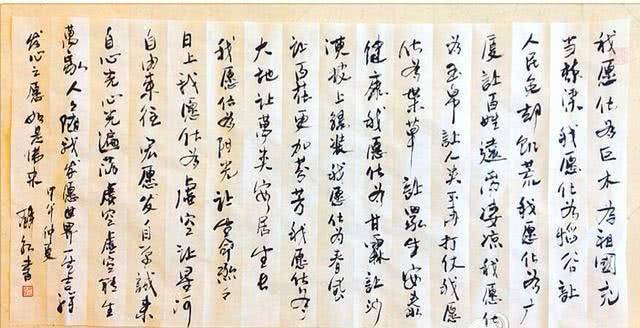 我愿化为巨木为祖國充
当栋梁我愿化为稻谷让
人民免却飢荒我愿化为广
厦让百姓遠离凄凉我愿化
为玉帛让人类不再打仗我愿
化为草让眾生安泰
健康我愿化为甘霖让沙
漠披上绿装我愿化为春风
让百花更加芬芳我愿化为
大地让万类安居生长
我愿化为阳光让生命
日上我愿化为虚空让星河
自由来往宏愿发自诚来
自心光心光遍满虚空虚空生
萬象人人随我发愿世界一片吉祥
发心之愿如是佛
甲午仲夏
書